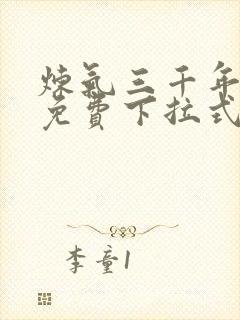 炼气三千年
免费下拉式
李童1